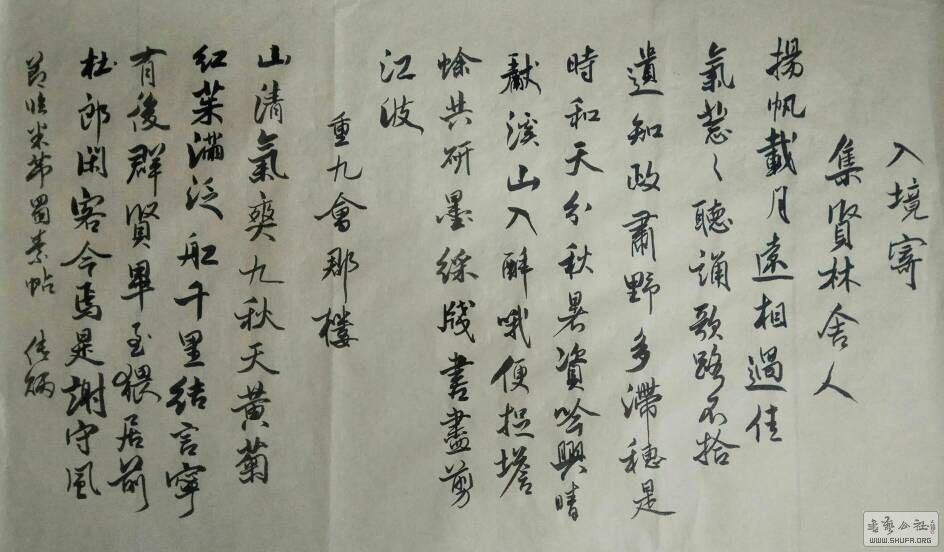 入境寄
集賢林舍人
揚帆載月遠相過佳
氣葱々聽誦歌路不拾
遺知政肅野多滯穗是
時和天分秋暑資吟興晴
獻溪山入醉哦便捉蟾
蜍共研墨綵牋書盡剪
江波
重九會郡樓
山清氣爽九秋天黃菊
红茱滿泛船千里結言寧
有後群賢畢至猥居前
杜郎閑客今焉是謝守風
節临米芾蜀素帖
書藝公社
WWW.SHUFA.ORG